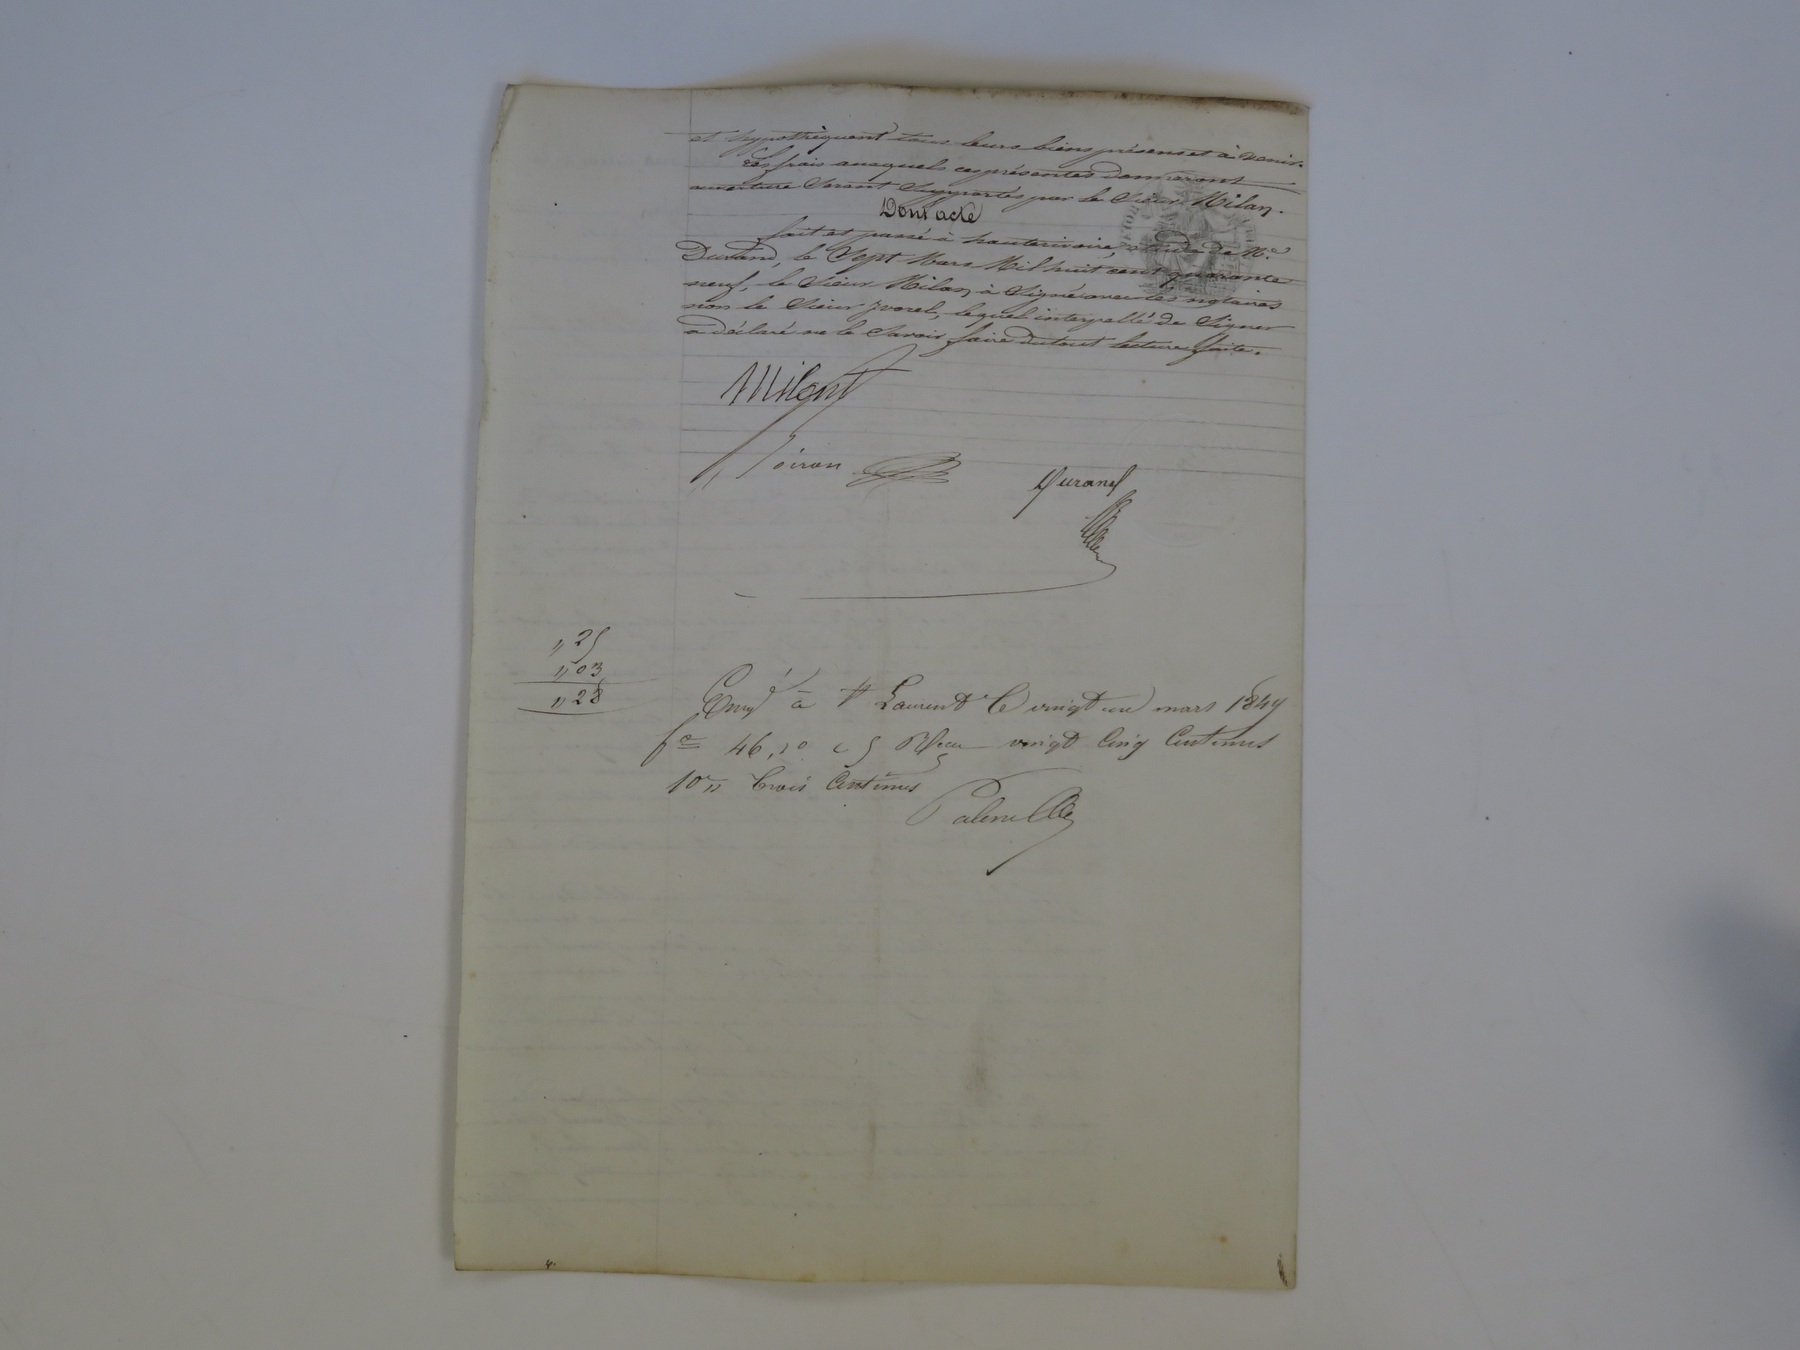 et hypothèquent tous leurs biens présens et à venir.
Les frais auxquel ces présentes donneront
ouverture seront supportés par le Sieur Milan.
Dont acte
fait et passé à hauterivoire, étude de Me
Durand, le Sept Mars Mil huit cent quarante
neuf, le Sieur Milan à Signé avec les notaires
non le Sieur Yvorel, lequel interpellé de Signer
a déclaré ne le Savoir faire du tout lecture faite.
Milant
Durand
" 25
" 03
" 28
Enregé à St Laurent le vingt un mars 1849
fo 46, ro c 5 Reçu vingt Cinq Centimes
10e " trois Centimes